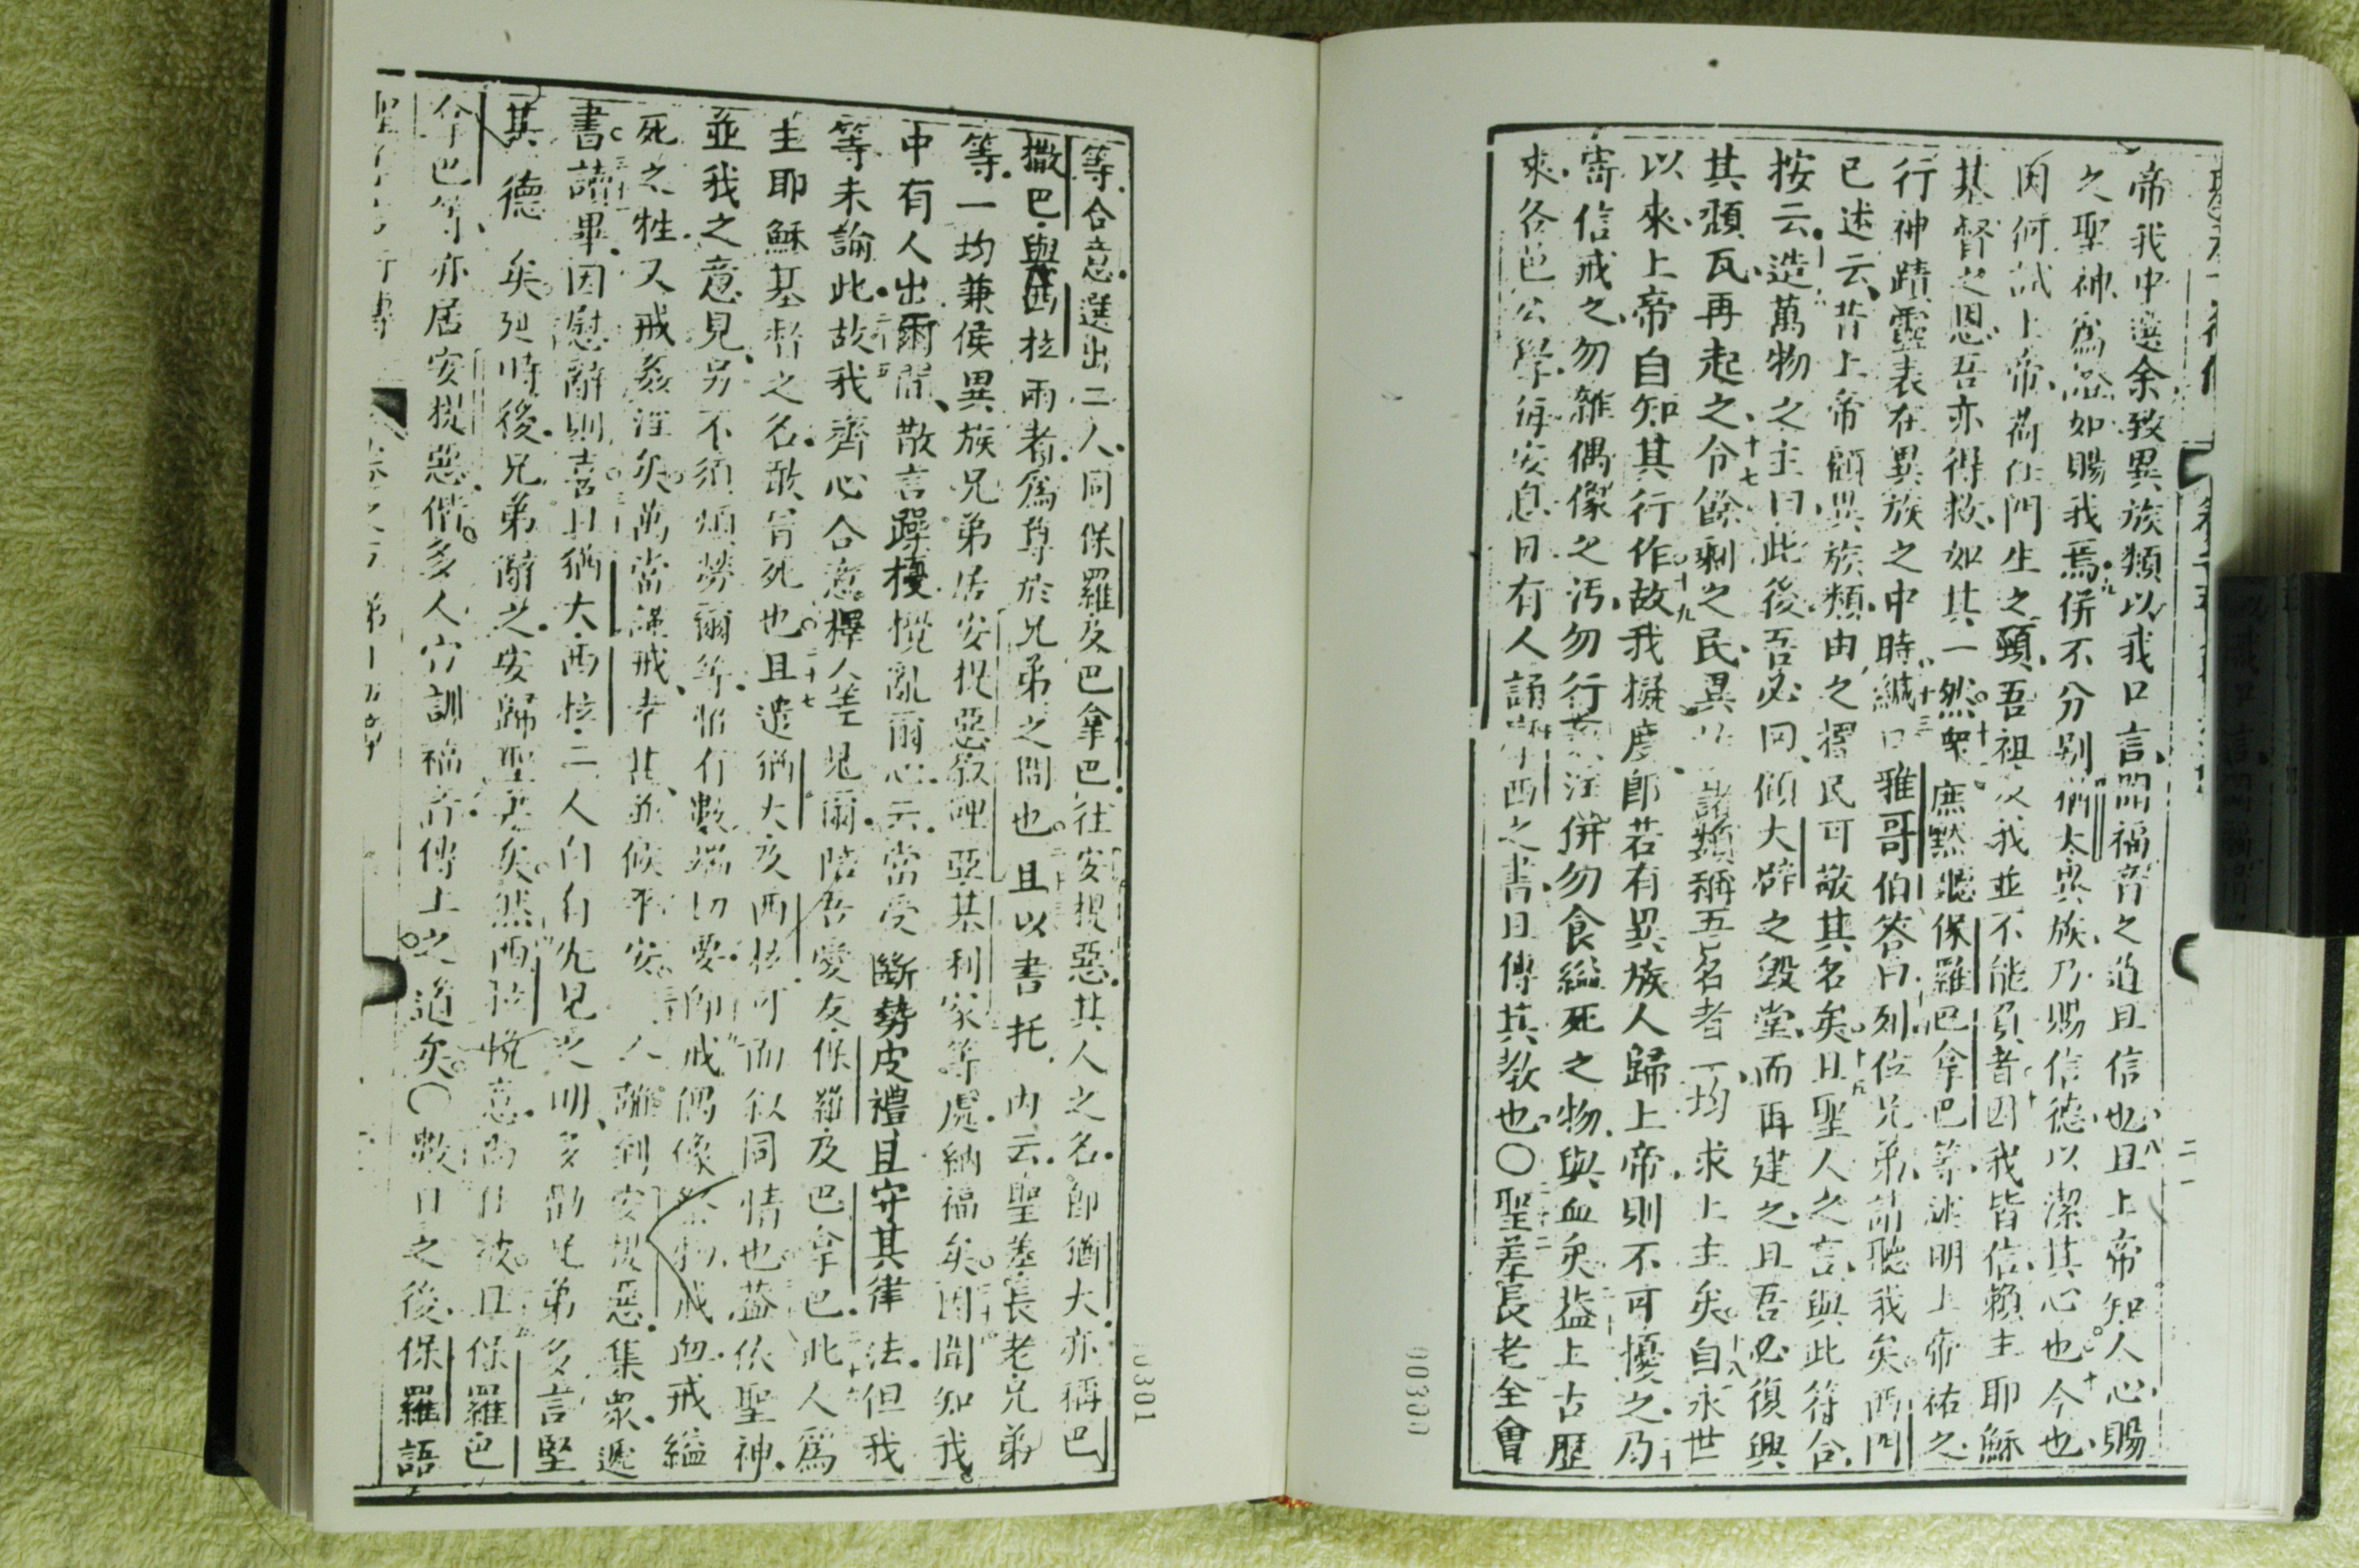 帝我中選余致異族類以我口言聞福音之道且信也且上帝知人心賜
之聖神為證如賜我焉併不分别猶太與異族乃賜信德以潔其心也今也
因何試上帝荷任門生之頸吾祖及我並不能負者因我皆信賴主耶穌
基督之恩吾亦得救如其一然衆庶黙聽保羅巴拿巴等述明上帝祐之
行神蹟靈表在異族之中時緘口雅哥伯答曰列位兄弟請聽我矣西門
已述云昔上帝顧異族類由之擇民可敬其名矣且聖人之言與此符合
按云造萬物之主曰此後吾必回傾大辟之毀堂而再建之且吾必復興
其頽瓦再起之令餘剩之民異 諸類稱吾名者一均求上主矣自永世
以來上帝自知其行作故我擬度郎若有異族人歸上帝則不可擾之乃
寄信戒之勿雜偶像之汚勿行 淫併勿食縊死之物與血矣葢上古歷
來各邑公學每安息日有人誦 西之書曰傳其敎也〇聖差長老全會
等合意選出二人同保羅及巴拿巴往安提惡其人之名即猶大亦稱巴
撒巴與西拉兩者為尊於兄弟之間也且以書托内云聖差長老兄弟
等一均兼侯異族兄弟居安提惡叙哩亞基利家等處納福矣因聞知我
中有人出爾間散言躁擾慌亂爾心云當受斷勢皮禮且守其律法但我
等未論此故我齊心合意擇人差見爾陪吾愛友保羅及巴拿巴此人為
主耶穌基督之名敢冐死也且遣猶大及西拉可而叙同情也葢依聖神
並我之意見另不須煩勞爾等惟有數端切要即戒偶像祭物戒血戒縊
死之牲又戒姦淫矣萬當謹戒幸甚並候平安 人離到安提惡集衆遞
書讀畢因慰辭則喜且猶大西拉二人自為先見之明多勸兄弟多言堅
其德矣延時後兄弟辭之安歸聖差矣然西拉悅意尚住彼且保羅巴
拿巴等亦居安提惡偕多人宣訓福音傳上之道矣〇數日之後保羅語
00300
0301